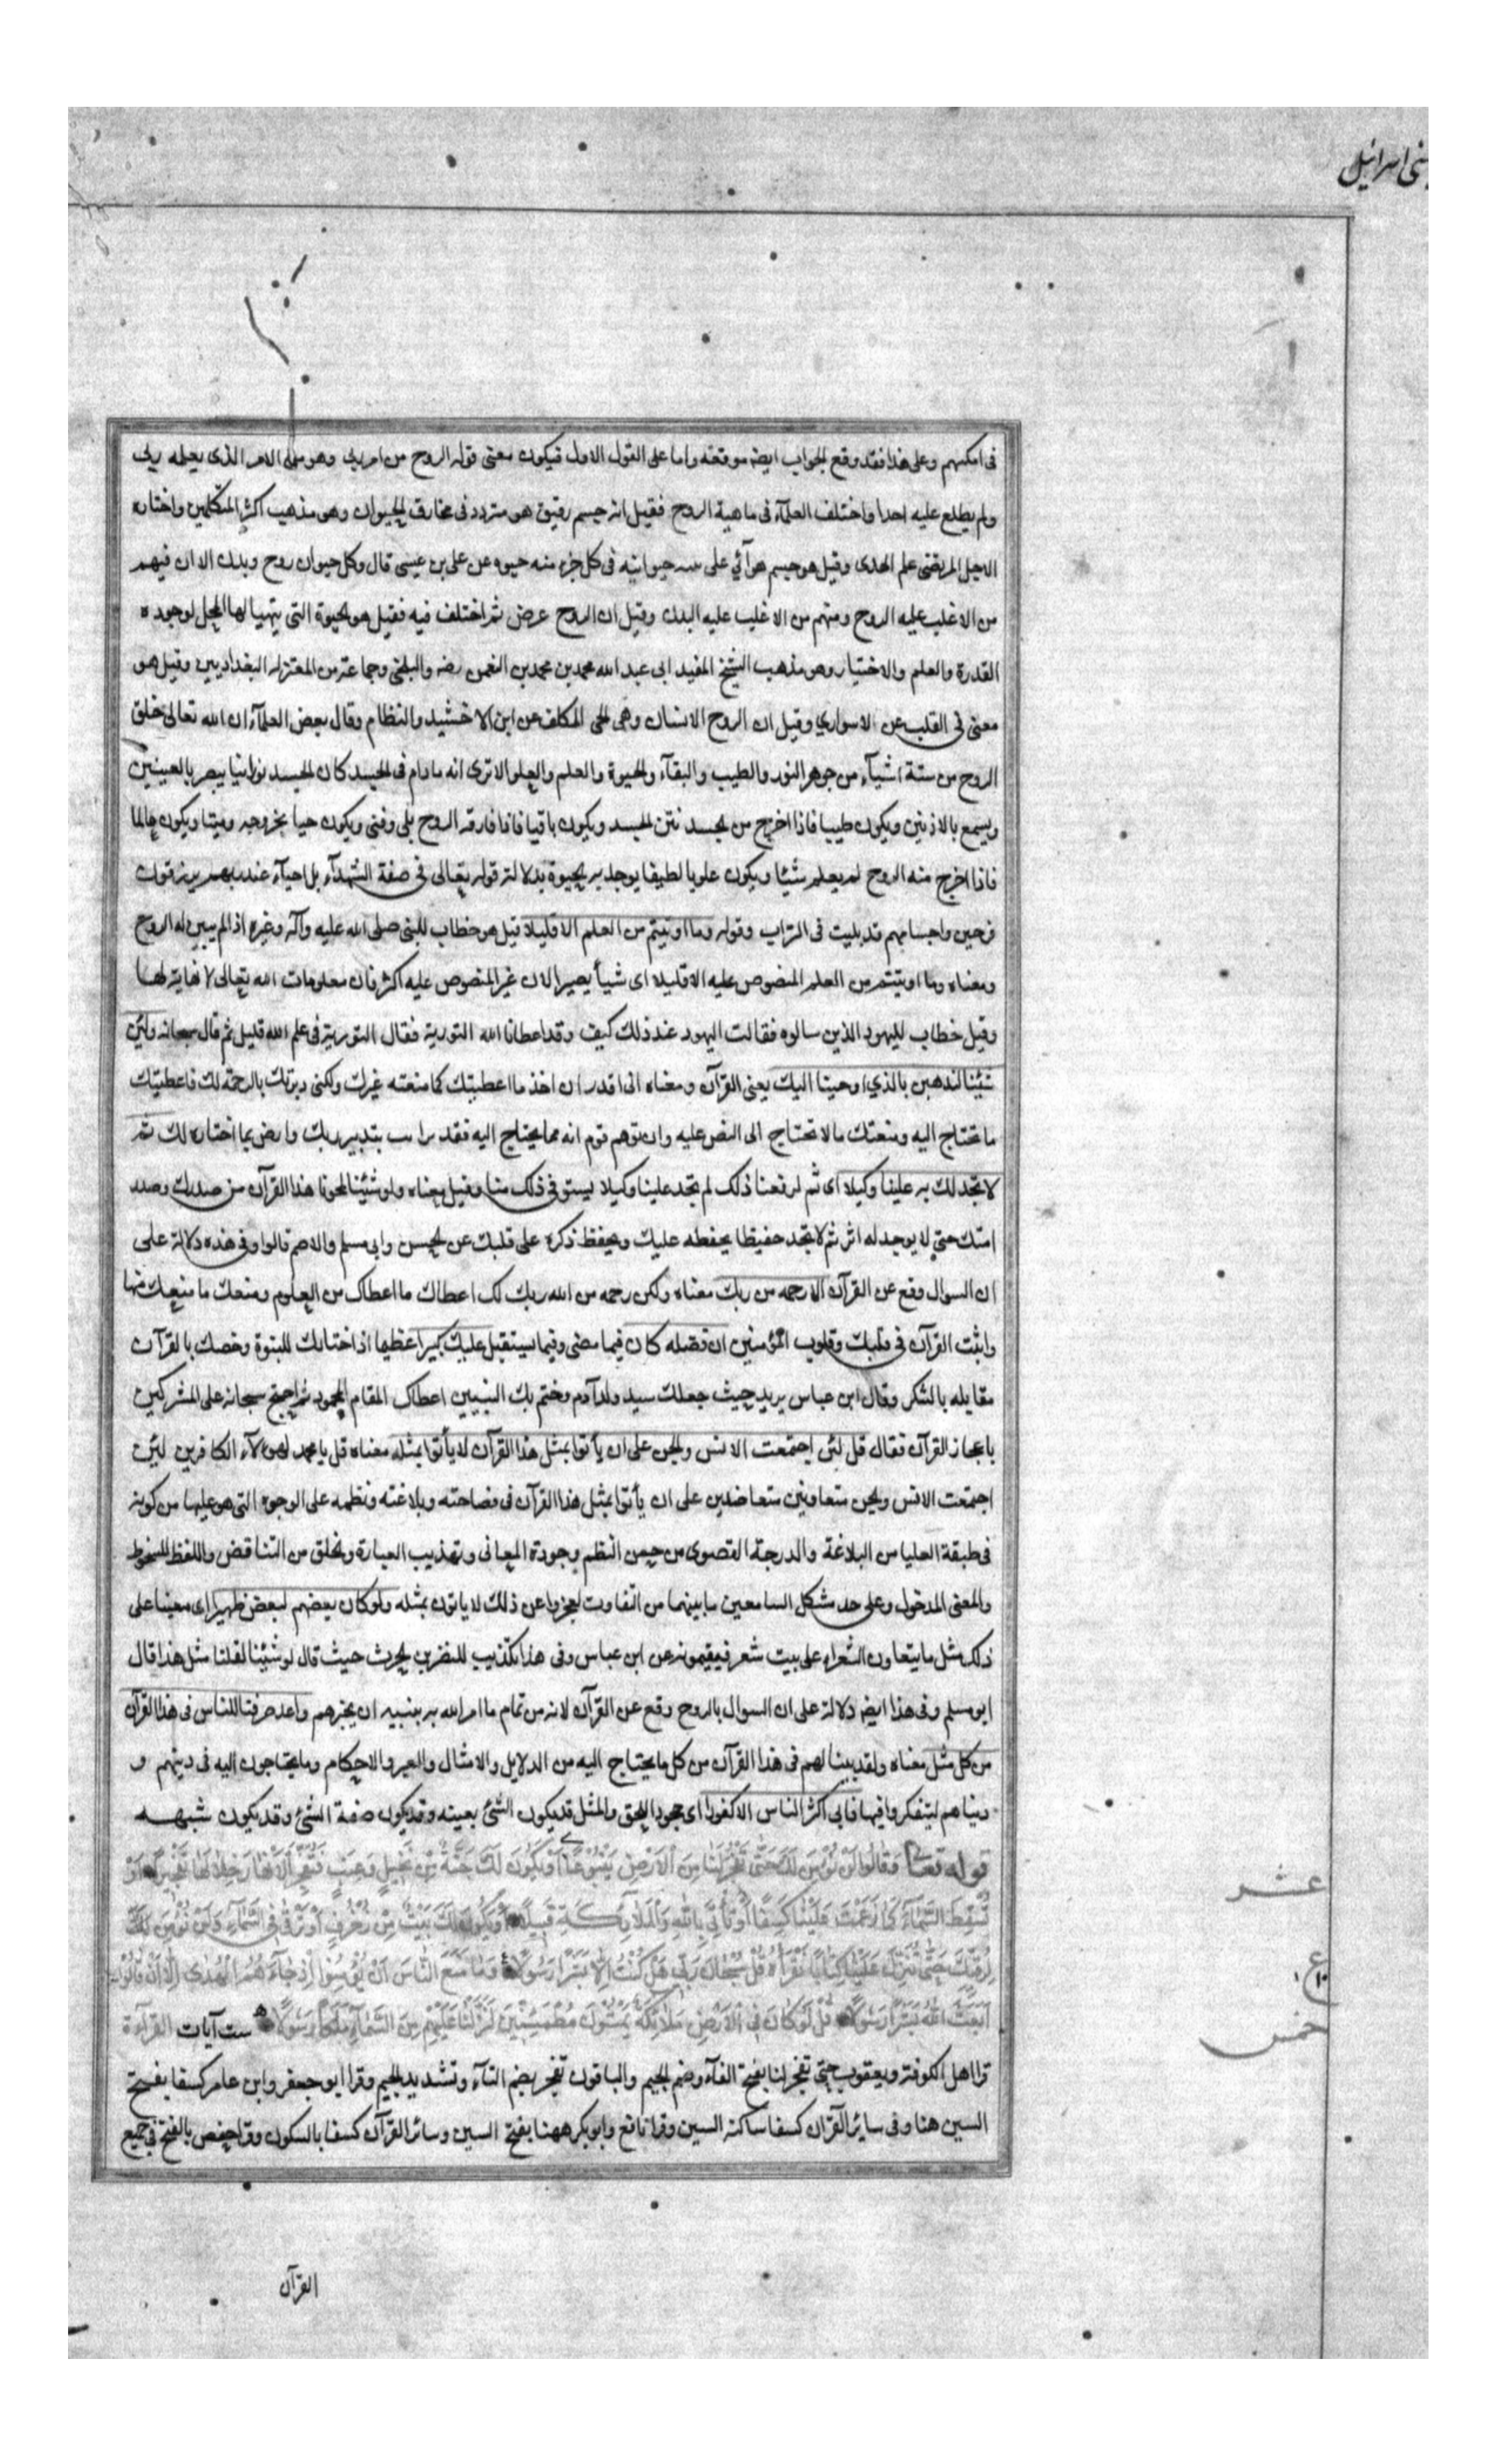 بنى اسرائيل
فى امكنهم وعلى هذا فقد وقع الجواب ايضا موقعه واما على القول الاول فيكون معنى قوله الروح من امر ربى وهو من الامر الذى يعلمه ربى
ولم يطلع عليه احدا واختلف العلمآء فى ماهية الروح فقيل انه جسم رقيق هو متردد فى مخارق الحيوان وهو مذهب اكثر المتكلمين واختاره
الاجل المرتضى علم الهدى وقيل هو جسم هوآئي على حيوانيه فى كل جزء منه حيوه عن على بن عيسى قال وكل حيوان روح وبدن الا ان فيهم
من الاغلب عليه الروح ومنهم من الاغلب عليه البدن وقيل ان الروح عرض ثم اختلف فيه فقيل هو الحيوة التى يتهيا لها المحل لوجوده
القدرة والعلم والاختيار وهو مذهب الشيخ المفيد ابى عبد الله محمد بن محمد بن النعمن رضه والبلخى وجماعة من المعتزله البغداديين وقيل هو
معنى فى القلب عن الاسواري وقيل ان الروح الانسان وهى الحى المكلف عن ابن الاخشيد والنظام وقال بعض العلمآء ان الله تعالى خلق
الروح من ستة اشيآء من جوهر النور والطيب والبقآء والحيوة والعلم والعلو الا ترى انه مادام فى الجسد كان الجسد نورانيا يبصر بالعينين
ويسمع بالاذنين ويكون طيبا فاذا اخرج من الجسد نتن الجسد ويكون باقيا فاذا فارقه الروح بلى وفنى ويكون حيا بخروجه وميتا ويكون عالما
فاذا اخرج منه الروح لم يعلم شيئا ويكون علويا لطيفا يوجد به الحيوة بدلالة قوله تعالى فى صفة الشهدآء بل احيآء عند ربهم يرزقون
فرحين واجسامهم قد بليت فى التراب وقوله وما اوتيتم من العلم الا قليلا قيل هو خطاب للنبى صلى الله عليه وآله وغيره اذ لم يبين له الروح
ومعناه وما اوتيتم من العلم المنصوص عليه الا قليلا اى شيأ يصير الان غير المنصوص عليه اكثر فان معلومات الله تعالى لا نهاية لها
وقيل خطاب لليهود الذين سالوه فقالت اليهود عند ذلك كيف وقد اعطانا الله التورية فقال التورية فى علم الله قليل ثم قال سبحانه ولئن
شئنا لنذهبن بالذي اوحينا اليك يعنى القرآن ومعناه انى اقدر ان اخذ ما اعطيتك كما منعته غيرك ولكنى دبرتك بالرحمة لك فاعطيتك
ما تحتاج اليه ومنعتك ما لا تحتاج الى النص عليه وان توهم قوم انه مما يحتاج اليه فقد بتدبير ربك وارض بما اختاره لك ثم
لا تجد لك به علينا وكيلا اى ثم لو رفعنا ذلك لم تجد علينا وكيلا يستوفى ذلك منا وقيل معناه ولو شئنا لمحونا هذا القرآن من صدرك وصدر
امتك حتى لا يوجد له اثر ثم لا تجد حفيظا يحفظه عليك ويحفظ ذكره على قلبك عن الحسن وابى مسلم والاصم قالوا وفى هذه دلالة على
ان السوال وقع عن القرآن الا رحمه من ربك معناه ولكن رحمه من الله ربك لك اعطاك ما اعطاك من العلوم ومنعك ما منعك منها
واثبت القرآن فى قلبك وقلوب المؤمنين ان فضله كان فيما مضى وفيما يستقبل عليك كبيرا عظيما اذ اختارك للنبوة وخصك بالقرآن
مقابله بالشكر وقال ابن عباس يريد حيث جعلك سيد ولد آدم وختم بك النبيين اعطاك المقام المحمود ثم احتج سبحانه على المشركين
باعجاز القرآن فقال قل لئن اجتمعت الانس والجن على ان يأتوا بمثل هذا القرآن لا يأتون بمثله معناه قل يا محمد لهؤلآء الكافرين لئن
اجتمعت الانس والجن متعاونين متعاضدين على ان يأتوا بمثل هذا القرآن فى فصاحته وبلاغته ونظمه على الوجوه التى هو عليها من كونه
فى طبقة العليا من البلاغة والدرجة القصوى من حسن النظم وجودة المعانى وتهذيب العبارة والخلو من التناقض واللفظ المسخوط
والمعنى المدخول وعلى حد مشكل السامعين ما بينهما من التفاوت لعجزوا عن ذلك لا ياتون بمثله ولو كان بعضهم لبعض ظهيرا اى معينا على
ذلك مثل ما يتعاون الشعراء على بيت شعر فيقيمونه عن ابن عباس وفى هذا تكذيب للنضر بن الحرث حيث قال لو شئنا لقلنا مثل هذا قال
ابو مسلم وفى هذا ايضا دلالة على ان السوال بالروح وقع عن القرآن لانه من تمام ما امر الله به نبيه ان يخبرهم ولقد صرفنا للناس فى هذا القرآن
من كل مثل معناه ولقد بينا لهم فى هذا القرآن من كل ما يحتاج اليه من الدلايل والامثال والعبر والاحكام وما يحتاجون اليه فى دينهم و
دنياهم ليتفكروا فيها فابى اكثر الناس الا كفورا اى جحودا للحق والمثل قد يكون الشئ بعينه وقد يكون صفة الشئ وقد يكون شبهه
قوله تعالى وَقَالُوا لَنْ نُؤْمِنَ لَكَ حَتَّى تَفْجُرَ لَنَا مِنَ الْاَرْضِ يَنْبُوعًا اَوْ تَكُونَ لَكَ جَنَّةٌ مِنْ نَخِيلٍ وَعِنَبٍ فَتُفَجِّرَ الْاَنْهَارَ خِلَالَهَا تَفْجِيرًا اَوْ
تُسْقِطَ السَّمَآءَ كَمَا زَعَمْتَ عَلَيْنَا كِسَفًا اَوْ تَأْتِىَ بِاللهِ وَالْمَلَآئِكَةِ قَبِيلًا اَوْ يَكُونَ لَكَ بَيْتٌ مِنْ زُخْرُفٍ اَوْ تَرْقَى فِى السَّمَآءِ وَلَنْ نُؤْمِنَ لَكَ
لِرُقِيِّكَ حَتَّى تُنَزِّلَ عَلَيْنَا كِتَابًا نَقْرَأُهُ قُلْ سُبْحَانَ رَبِّى هَلْ كُنْتُ اِلَّا بَشَرًا رَسُولًا وَمَا مَنَعَ النَّاسَ اَنْ يُؤْمِنُوا اِذْ جَآءَهُمُ الْهُدَى اِلَّا اَنْ قَالُوا
اَبَعَثَ اللهُ بَشَرًا رَسُولًا قُلْ لَوْ كَانَ فِى الْاَرْضِ مَلَآئِكَةٌ يَمْشُونَ مُطْمَئِنِّينَ لَنَزَّلْنَا عَلَيْهِمْ مِنَ السَّمَآءِ مَلَكًا رَسُولًا ست آيات القرآءة
قرا اهل الكوفة ويعقوب حتى تفجر لنا بفتح الفآء وضم الجيم والباقون تفجر بضم التآء وتشديد الجيم وقرا ابو جعفر وابن عامر كسفا بفتح
السين هنا وفى ساير القرآن كسفا ساكنه السين وقرا نافع وابو بكر ههنا بفتح السين وسائر القرآن كسفا بالسكون وقرا حفص بالفتح فى جميع
عشر
ع
١٠
خمس
القرآن